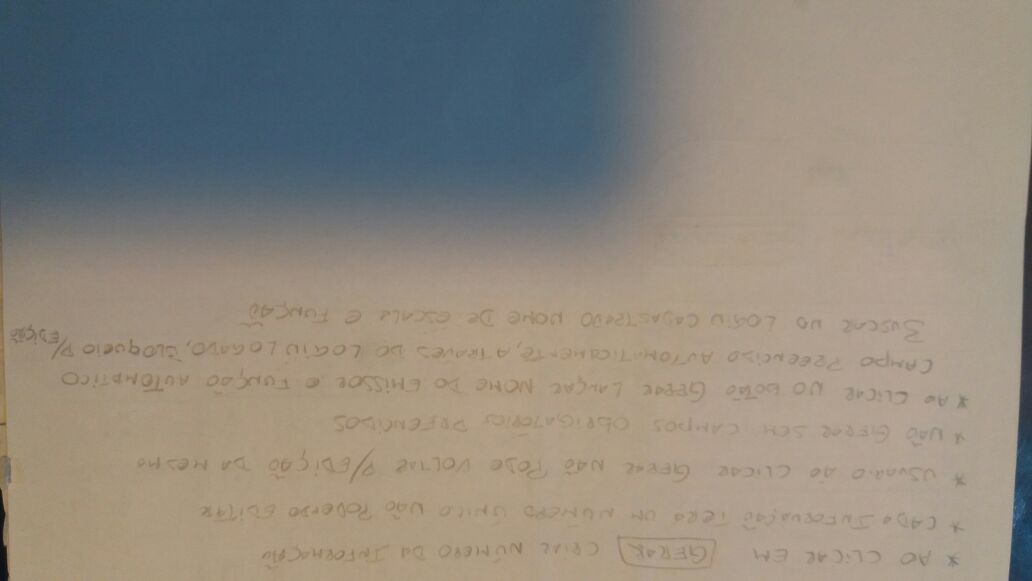 * AO CLICAR EM GERAR CRIAR NÚMERO DA INFORMAÇÃO
* CADA INFORMAÇÃO TERÁ UM NÚMERO ÚNICO NÃO PODENDO EDITAR
* USUARIO AO CLICAR GERAR NÃO PODE VOLTAR P/EDIÇÃO DA MESMO
* NÃO GERAR SEM CAMPOS OBRIGATÓRIOS PREENCIDOS
* AO CLICAR NO BOTÃO GERAR LANÇAR NOME DO EMISSOR E FUNÇÃO AUTOMATICO
CAMPO PREENCIDO AUTOMATICAMENTE, ATRAVÉS DO LOGIN LOGADO, BLOQUEIO P/EDIÇÃO
BUSCAR NO LOGIN CADASTRADO NOME DE ESCALA E FUNÇÃO